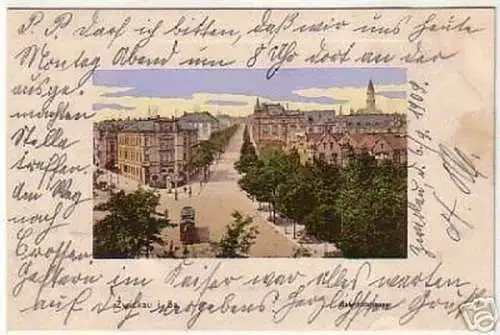 P. P. Darf ich bitten, daß wir uns heute
Montag Abend um 8 Uhr dort an der
ausge-
machten
Stelle
treffen.
dem Weg
nach
Crossen
Gestern im Kaiser war alles warten
auf Dich vergebens. Herzlichen Gruß
Zwickau d. 6/9. 1909.
Zwickau i. Sa.
Bahnhofstrasse